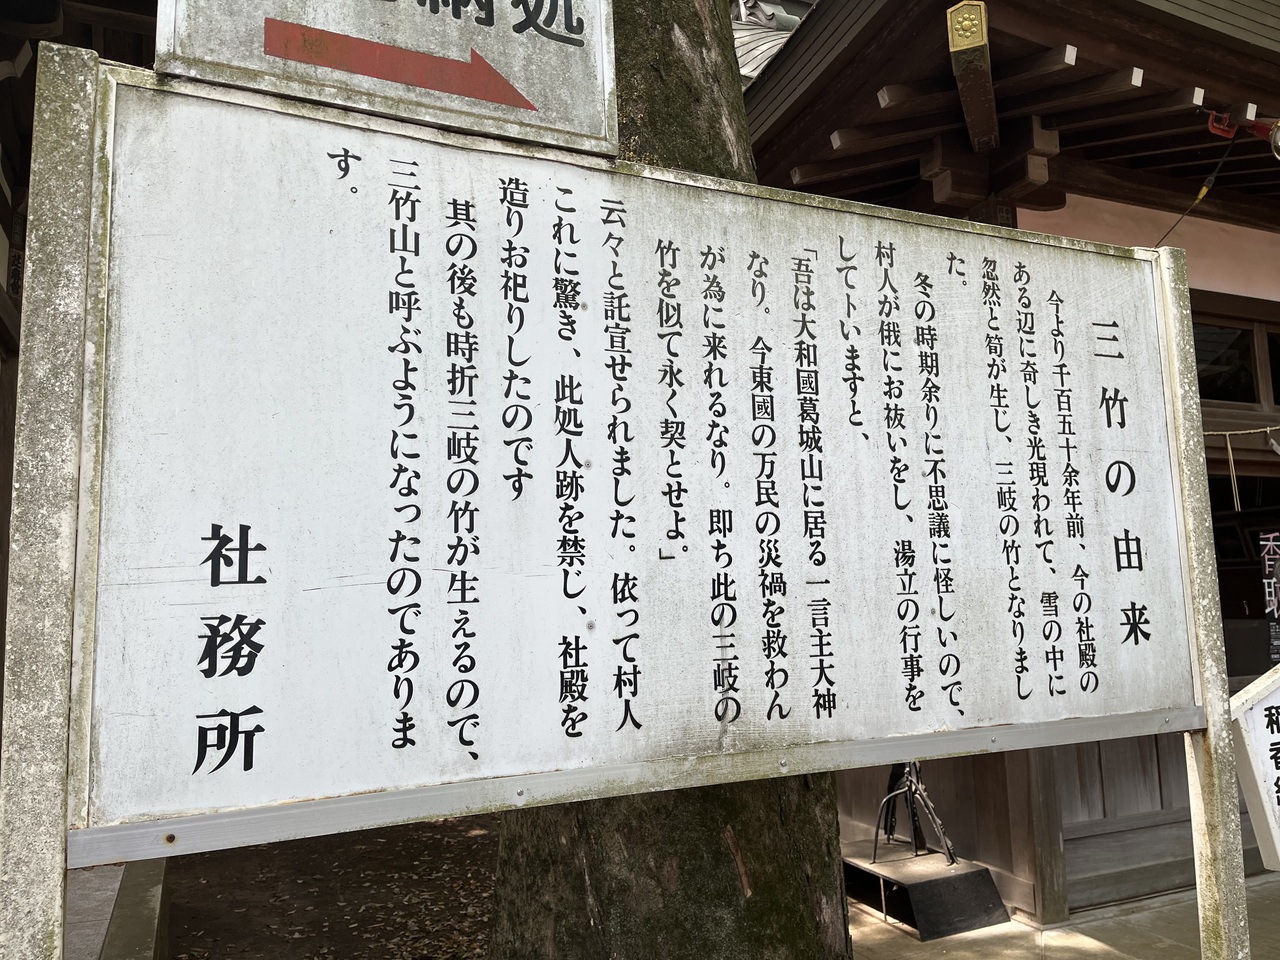 納処
三竹の由来
今より千百五十余年前、今の社殿の
ある辺に奇しき光現われて、雪の中に
忽然と筍が生じ、三岐の竹となりまし
た。
冬の時期余りに不思議に怪しいので、
村人が俄にお祓いをし、湯立の行事を
してトいますと、
「吾は大和國葛城山に居る一言主大神
なり。今東國の万民の災禍を救わん
が為に来れるなり。即ち此の三岐の
竹を似て永く契とせよ。」
云々と託宣せられました。依って村人
これに驚き、此処人跡を禁じ、社殿を
造りお祀りしたのです
其の後も時折三岐の竹が生えるので、
三竹山と呼ぶようになったのでありま
す。
社務所
香取